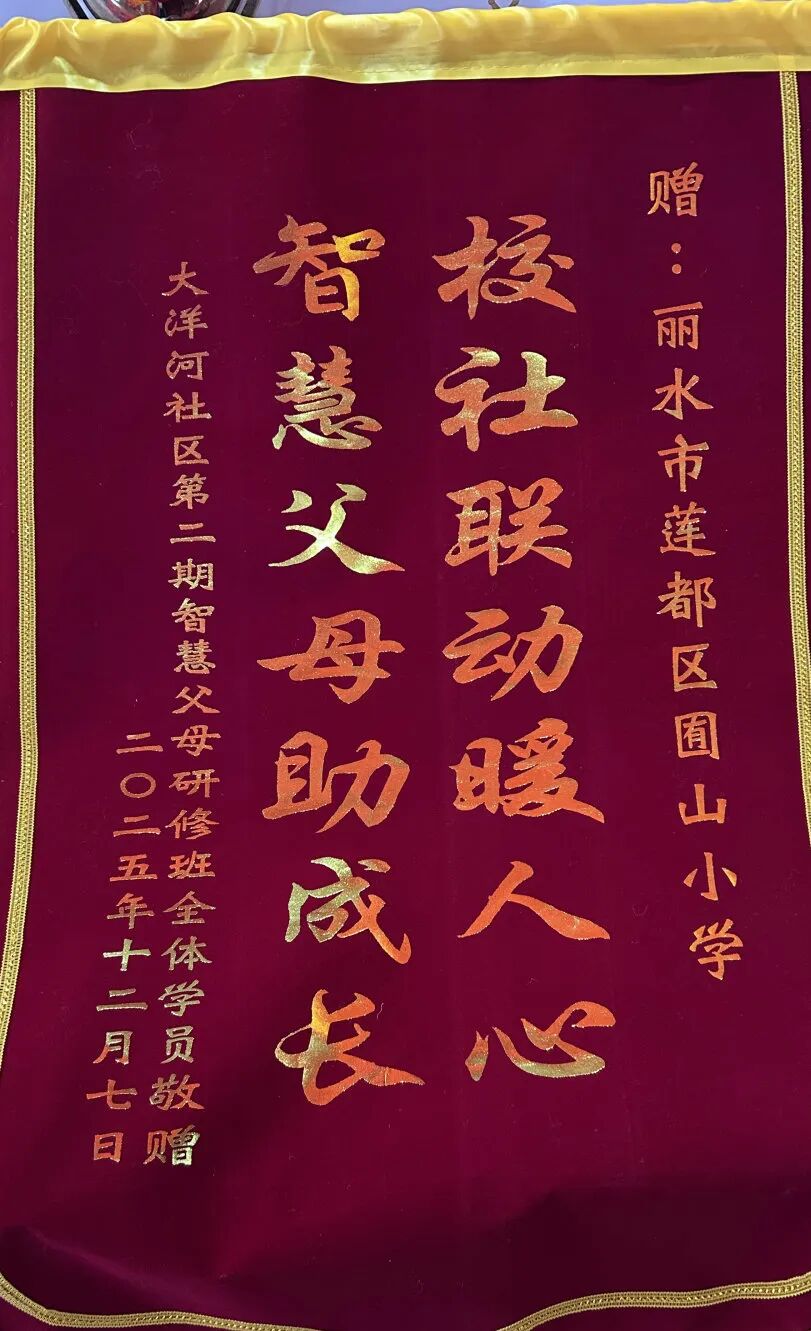 赠：丽水市莲都区囿山小学
校社联动暖人心
智慧父母助成长
大洋河社区第二期智慧父母研修班全体学员敬赠
二〇二五年十二月七日